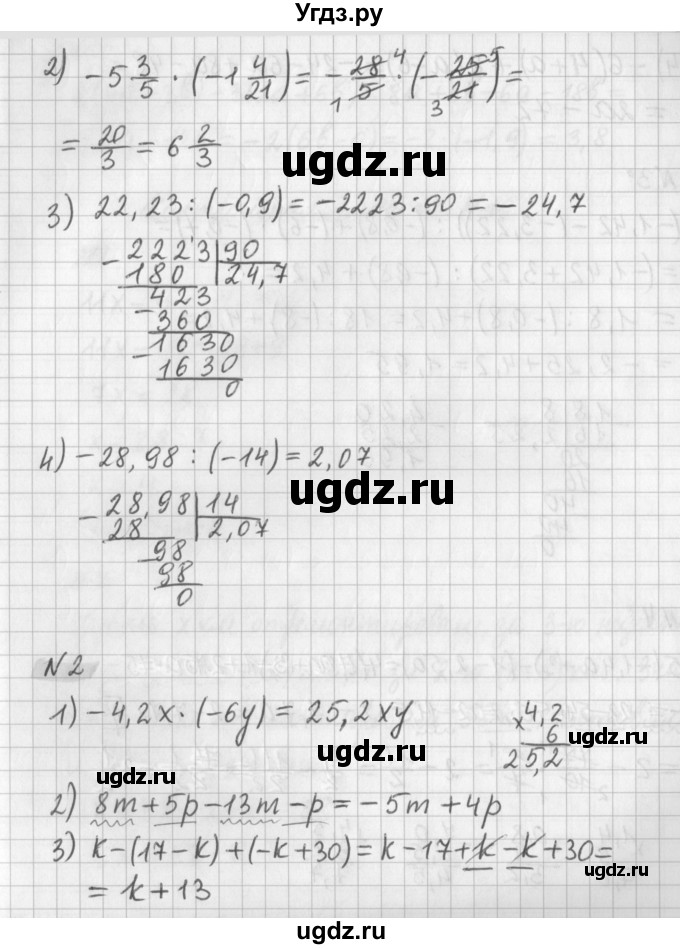 Угдз.ру
2) -5 3/5 · (-1 4/21) = - 28/5 · (- 25/21) =
4 5
1 3
= 20/3 = 6 2/3
ugdz.ru
3) 22,23 : (-0,9) = -2223 : 90 = -24,7
- 2223 | 90
180 24,7
- 423
360
- 1630
1630
0
4) -28,98 : (-14) = 2,07
ugdz.ru
- 28,98 | 14
28 2,07
- 98
98
0
N2
1) -4,2x · (-6y) = 25,2xy
x 4,2
6
25,2
ugdz.ru
ugdz.ru
2) 8m + 5p - 13m - p = -5m + 4p
3) k - (17 - k) + (-k + 30) = k - 17 + k - k + 30 =
= k + 13
ugdz.ru
Угдз.ру